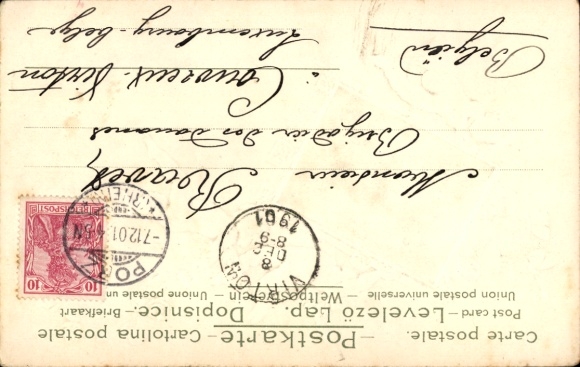 Carte postale. – Postkarte – Cartolina postale
Post card – Levelező Lap. Dopisnice. – Briefkaart
Union postale universelle – Weltpostverein – Unione postale un
VIRTON
8
DEC
8-9
1901
PORZ
-7.12.01.
(RHEIN)
REICHSPOST
10
10
Monsieur
Brigadier des Douanes
à Couvreux Virton
Luxembourg-belge
Belgien